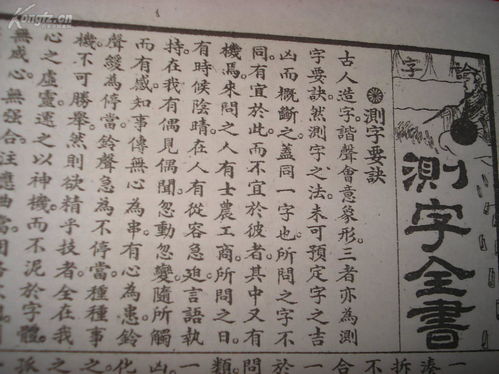 Kongfz.com
測字全書
測字要訣
古人造字諧聲會意象形。三者亦為測
字要訣。然測字之法。未可預定字之吉
凶而概斷之。蓋同一字也。所問之字不
同。有宜於此而不宜於彼者。其中又有
機焉。來問之人有士農工商。所問之日
有時候陰晴。在人有從容急迫。言語執
持。在我有偶見偶聞。忽動忽變。隨所觸
而有感。知事傳無心為串。有心為患。鈴
聲緩為停當。鈴聲急為不停當。種種事
機不可勝舉。然則欲精乎技者。全在我
心之虛靈。運之以神機。而不泥於字體。
無成心。無強合。注應曲當。用